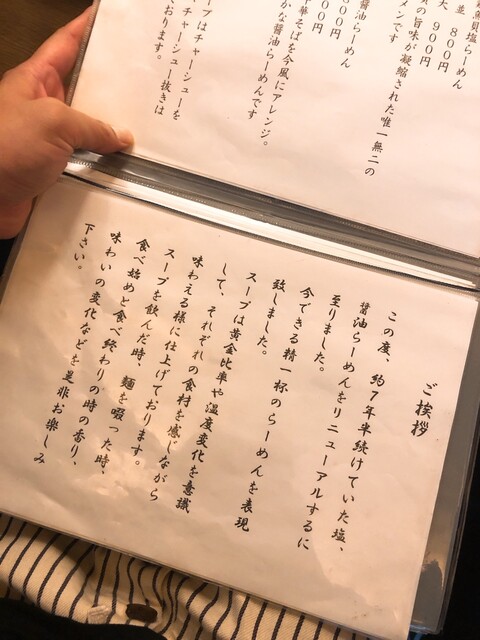 魚貝塩らーめん
並 800円
大 900円
の旨味が凝縮された唯一無二の
メンです
醤油らーめん
800円
900円
華そばを今風にアレンジ。
かな醤油らーめんです
ープはチャーシューを
チャーシュー抜きは
おります。
ご挨拶
この度、約7年半続けていた塩、
醤油らーめんをリニューアルするに
至りました。
今できる精一杯のらーめんを表現
致しました。
スープは黄金比率や温度変化を意識
して、それぞれの食材を感じながら
味わえる様に仕上げております。
スープを飲んだ時、麺を啜った時、
食べ始めと食べ終わりの時の香り、
味わいの変化などを是非お楽しみ
下さい。